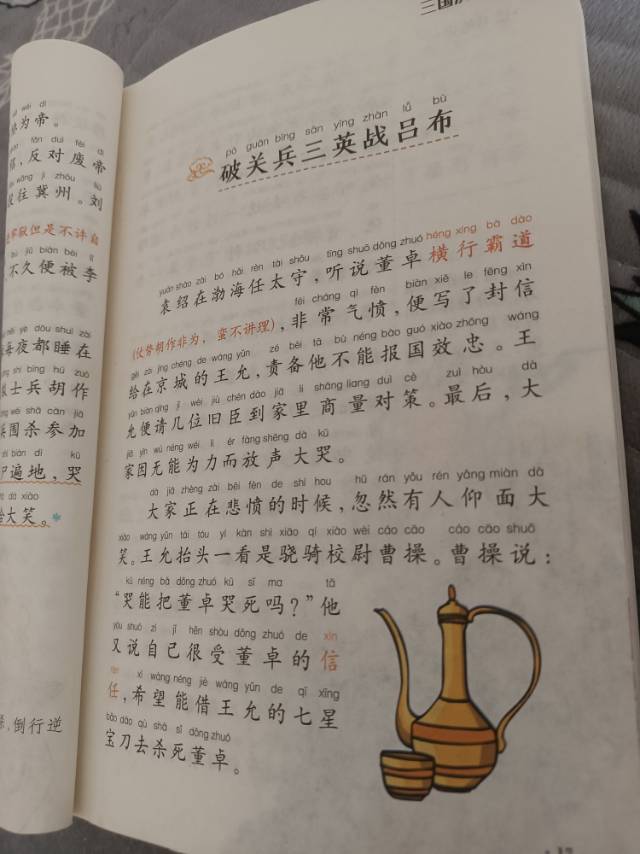 为帝。
，反对废帝
往冀州。刘
不久便被李
每夜都睡在
士兵胡作
围杀参加
尸遍地，哭
大笑。
，倒行逆
三国
pò guān bīng sān yīng zhàn lǚ bù
破关兵三英战吕布
yuán shào zài bó hǎi rèn tài shǒu tīng shuō dǒng zhuó héng xíng bà dào
袁绍在渤海任太守，听说董卓横行霸道
fēi cháng qì fèn biàn xiě le fēng xìn
(仗势胡作非为，蛮不讲理)，非常气愤，便写了封信
gěi zài jīng chéng de wáng yǔn zé bèi tā bù néng bào guó xiào zhōng wáng
给在京城的王允，责备他不能报国效忠。王
yǔn biàn qǐng jǐ wèi jiù chén dào jiā lǐ shāng liang duì cè zuì hòu dà
允便请几位旧臣到家里商量对策。最后，大
jiā yīn wú néng wéi lì ér fàng shēng dà kū
家因无能为力而放声大哭。
dà jiā zhèng zài bēi fèn de shí hou hū rán yǒu rén yǎng miàn dà
大家正在悲愤的时候，忽然有人仰面大
xiào wáng yǔn tái tóu yí kàn shì xiāo qí xiào wèi cáo cāo cáo cāo shuō
笑。王允抬头一看是骁骑校尉曹操。曹操说：
kū néng bǎ dǒng zhuó kū sǐ ma tā
“哭能把董卓哭死吗？”他
yòu shuō zì jǐ hěn shòu dǒng zhuó de xìn
又说自己很受董卓的信
rèn xī wàng néng jiè wáng yǔn de qī xīng
任，希望能借王允的七星
bǎo dāo qù shā sǐ dǒng zhuó
宝刀去杀死董卓。